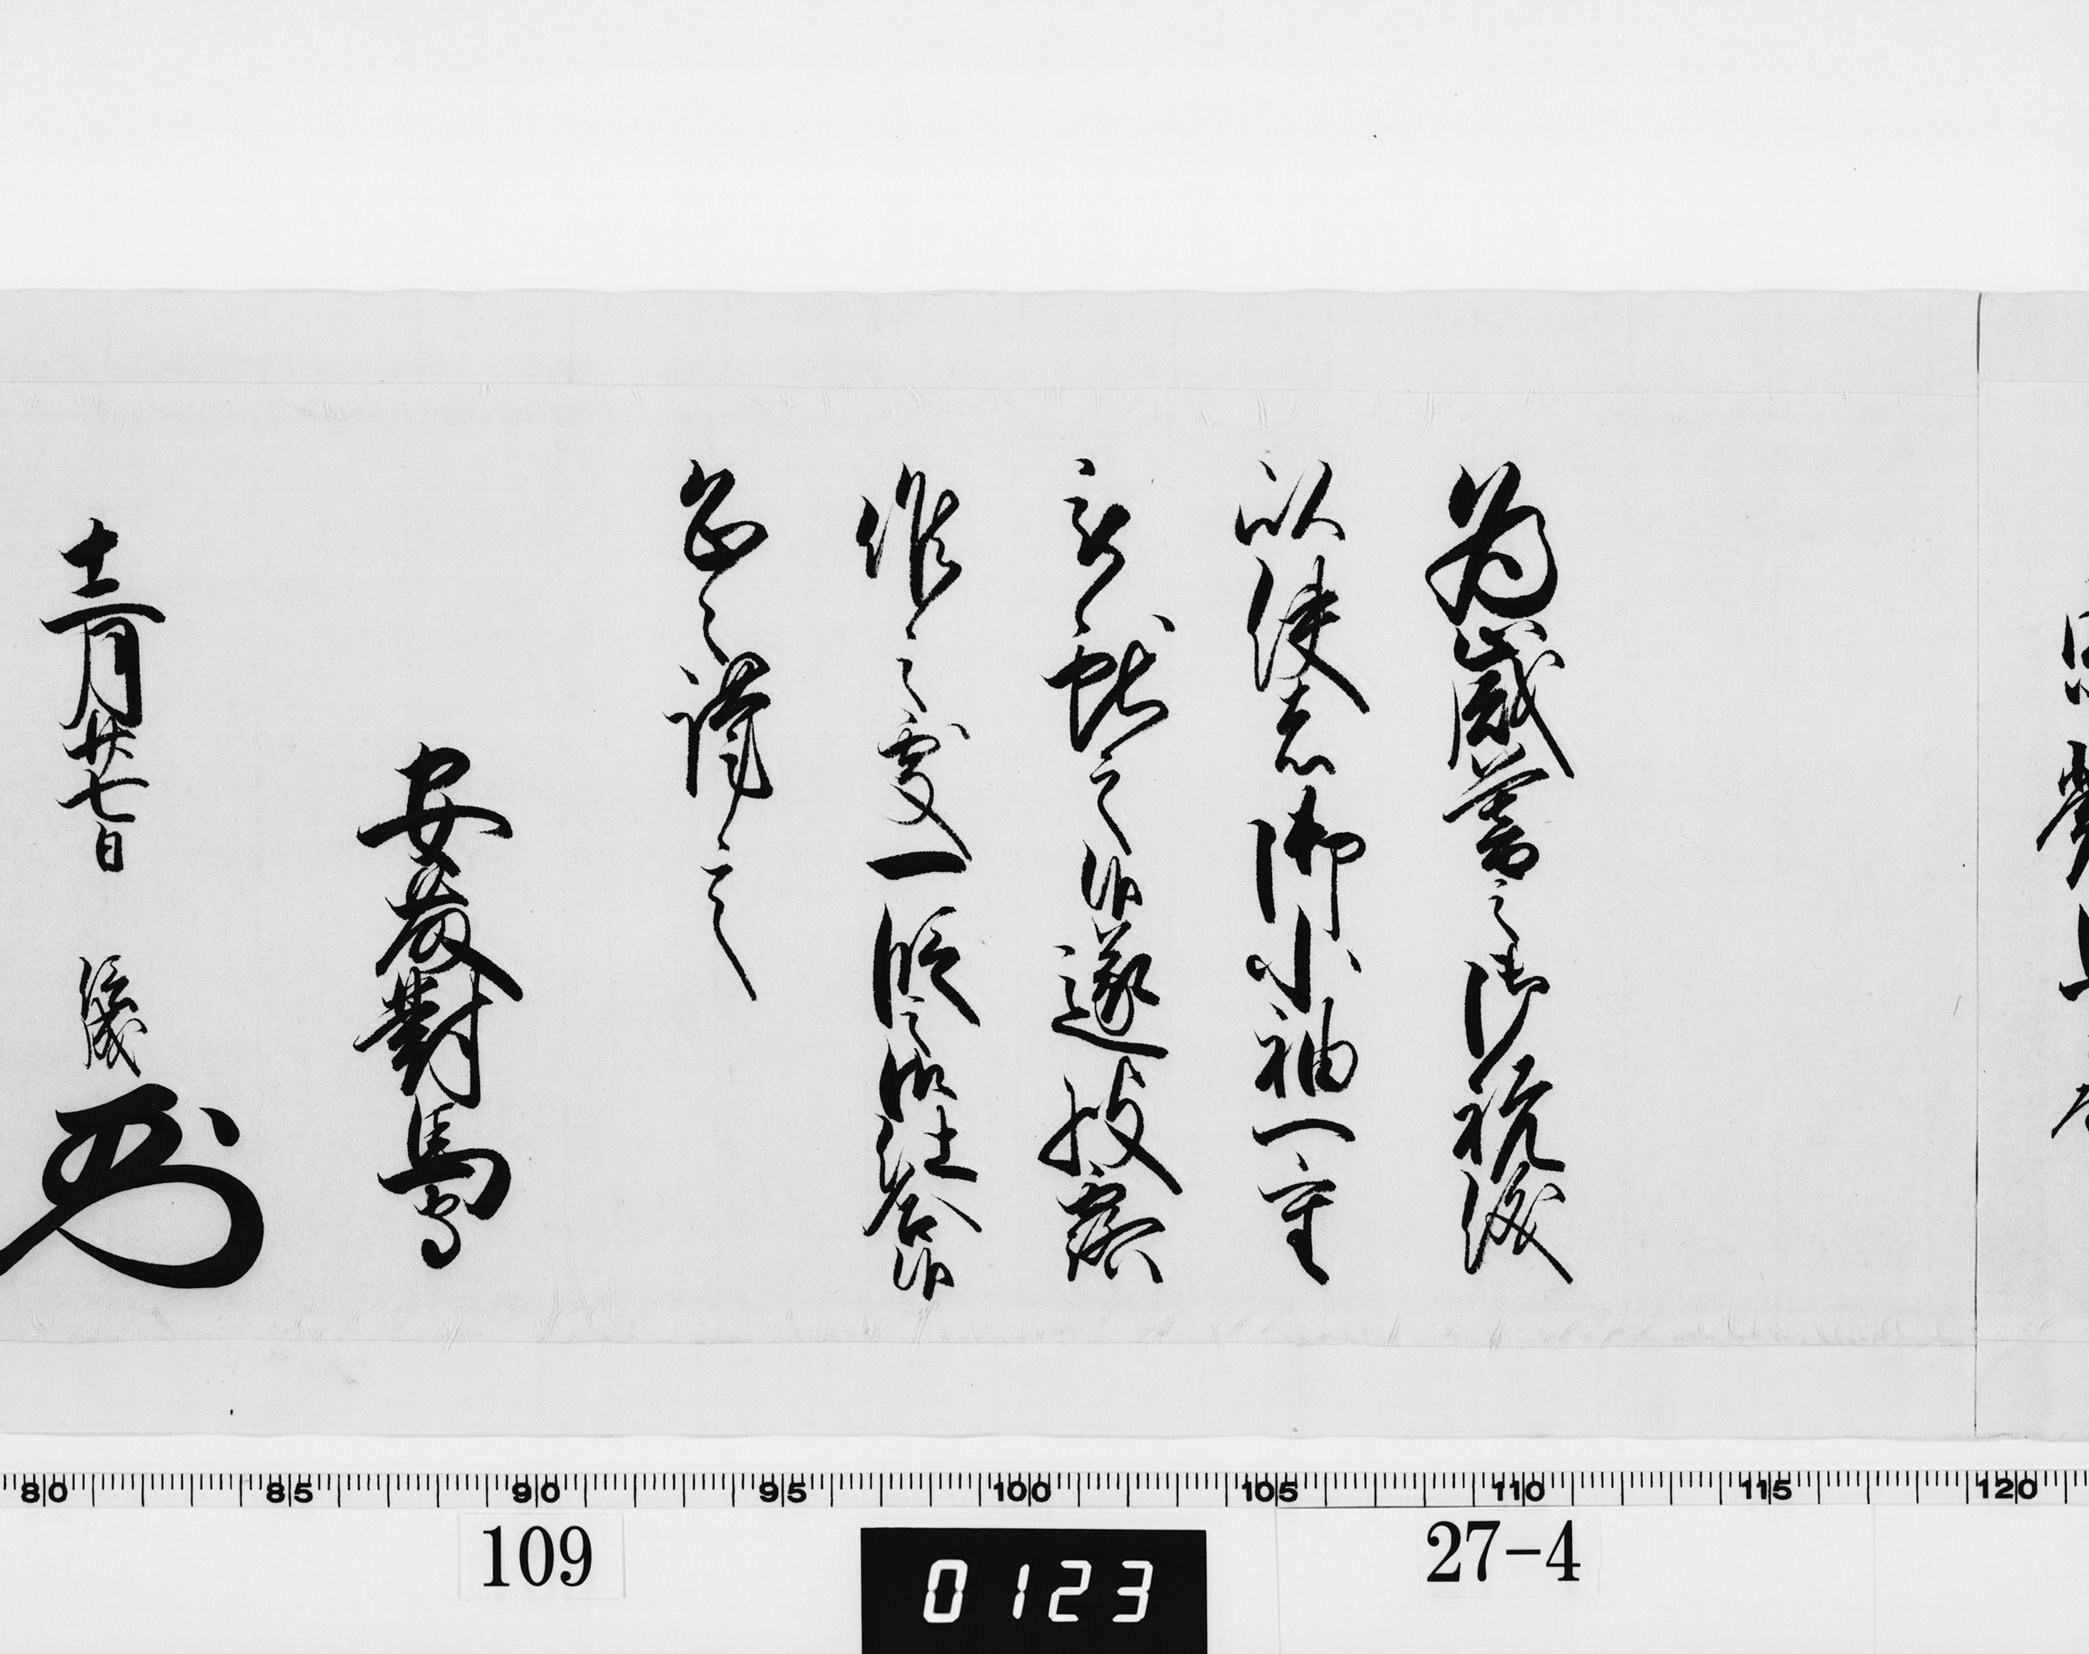 為歳暮之御祝儀
以使者御小袖一重
被献之候遂披露
之處一段之御仕合候
恐々謹言
安藤對馬守
十二月廿七日
80 85 90 95 100 105 110 115 120
109
0123
27-4